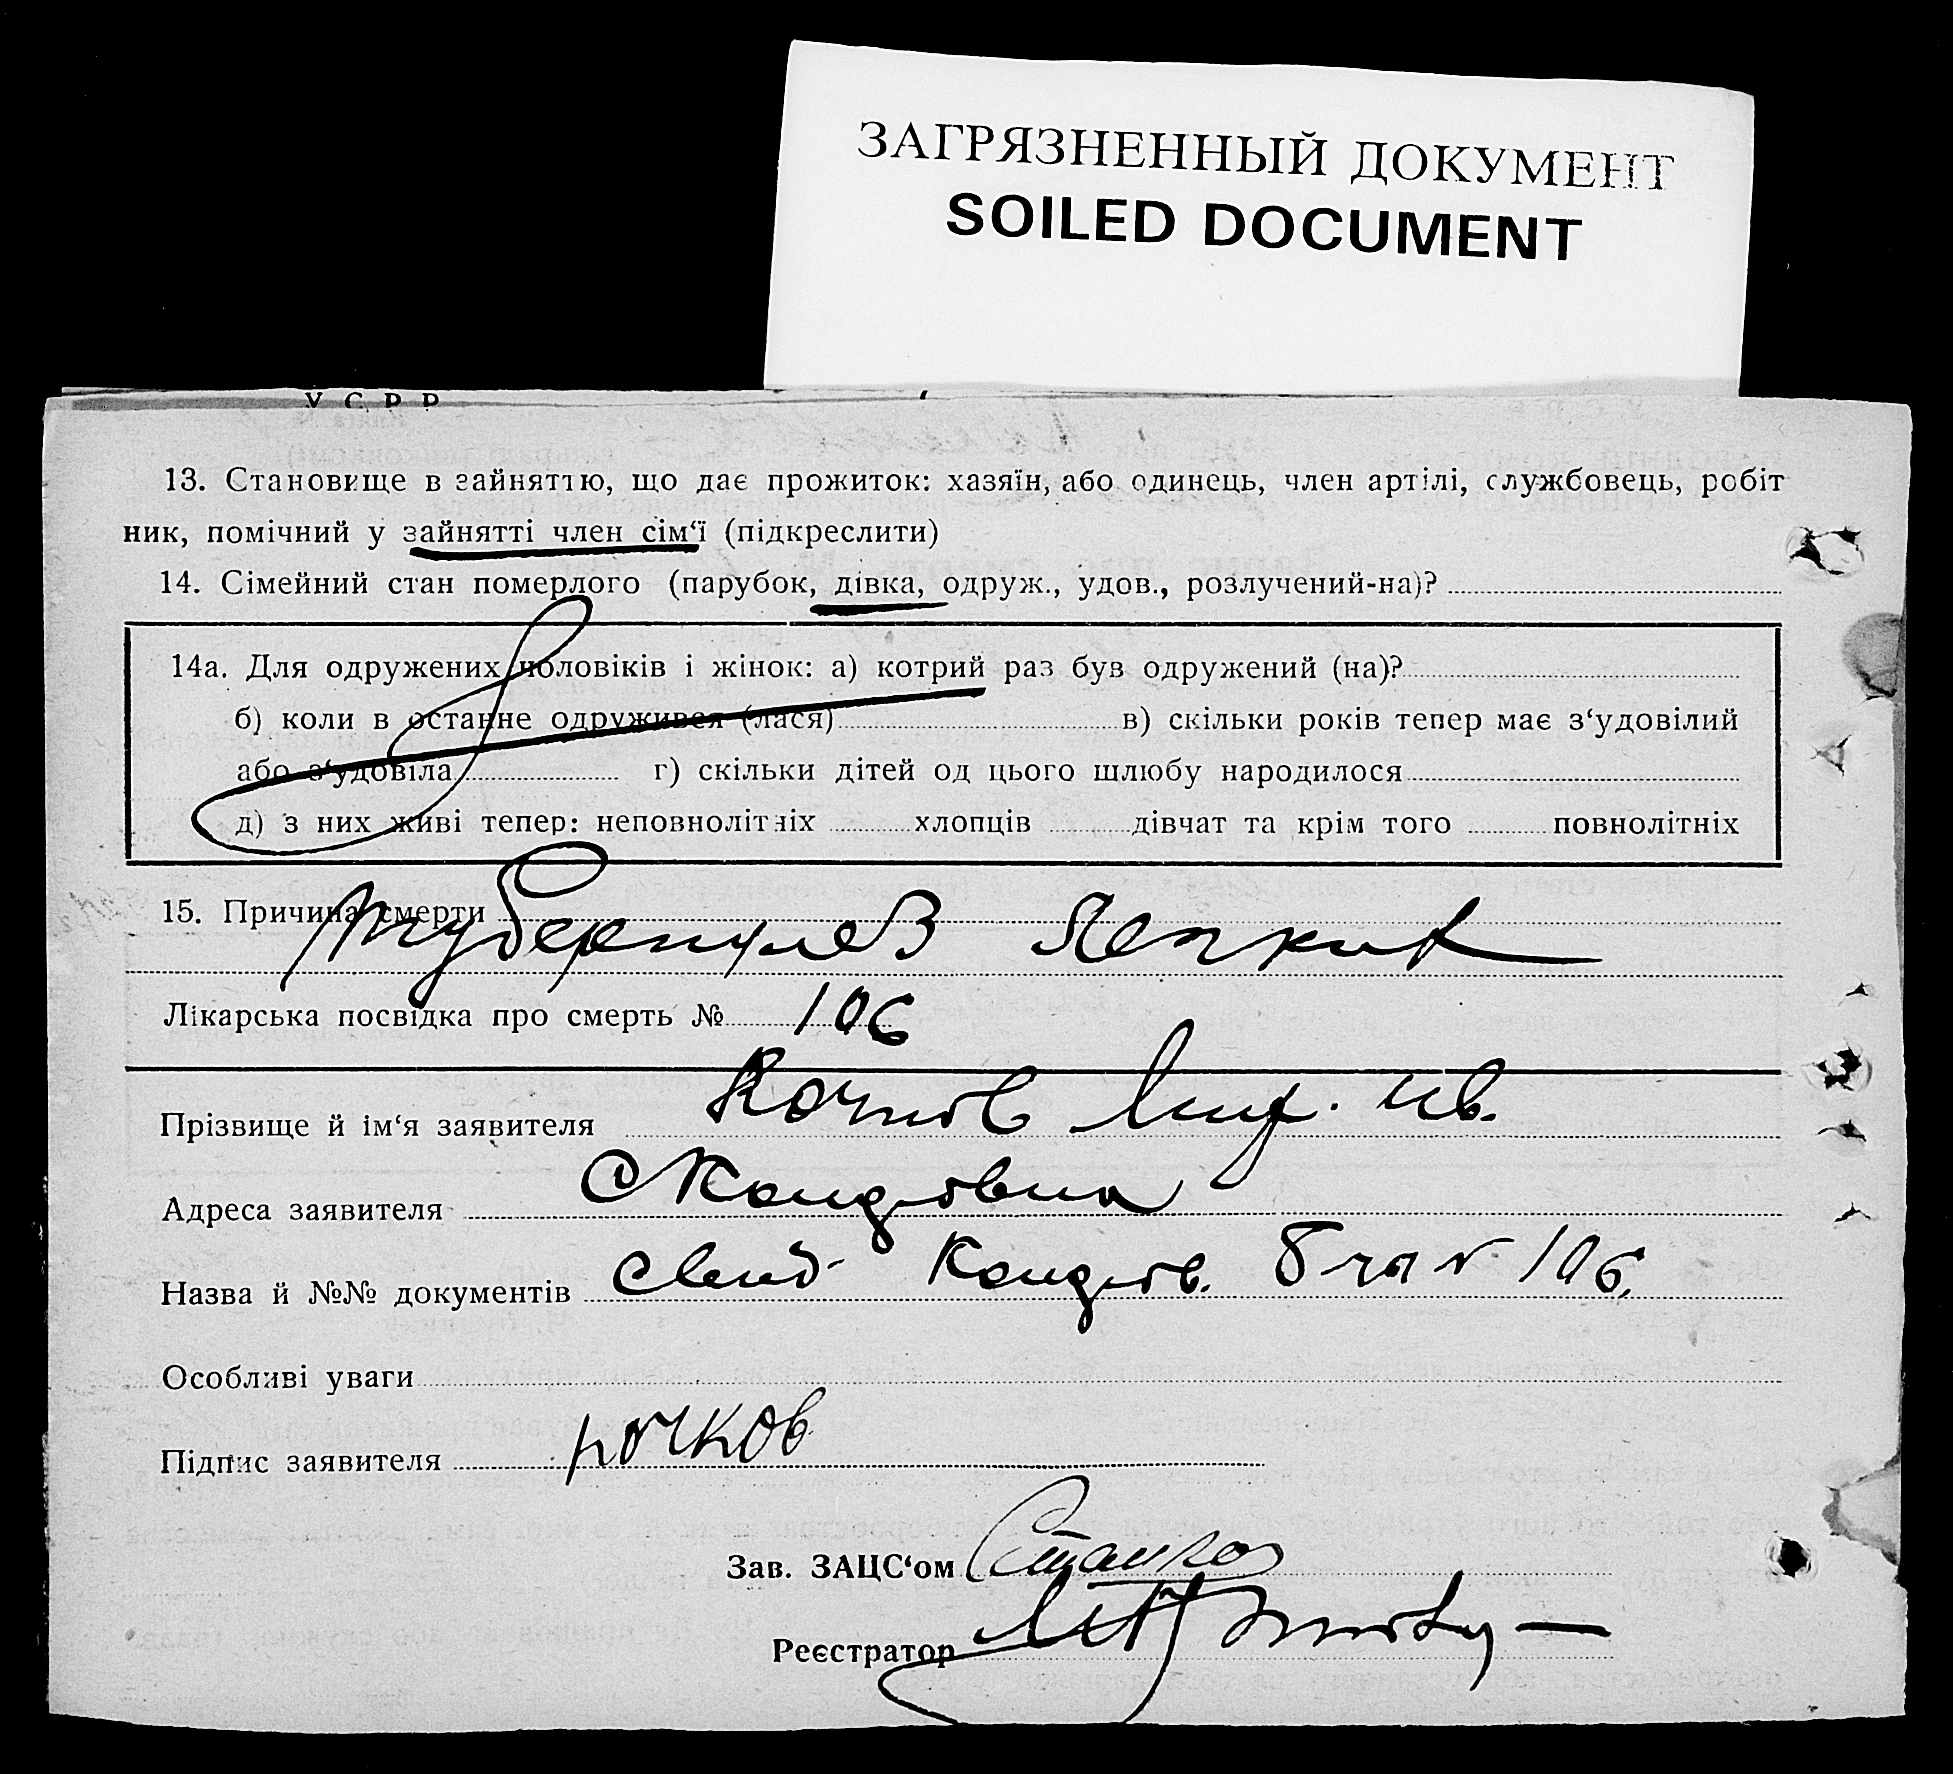 ЗАГРЯЗНЕННЫЙ ДОКУМЕНТ
SOILED DOCUMENT
У С Р Р
13. Становище в зайняттю, що дає прожиток: хазяїн, або одинець, член артілі, службовець, робіт
ник, помічний у зайнятті член сім‘ї (підкреслити)
14. Сімейний стан померлого (парубок, дівка, одруж., удов., розлучений-на)?
14а. Для одружених чоловіків і жінок: а) котрий раз був одружений (на)?
б) коли в останне одружився (лася) в) скільки років тепер має з‘удовілий
або з‘удовіла г) скільки дітей од цього шлюбу народилося
д) з них живі тепер: неповнолітніх хлопців дівчат та крім того повнолітніх
15. Причина смерти Туберкулез
Лікарська посвідка про смерть № 106
Прізвище й ім‘я заявителя Ив.
Адреса заявителя
Назва й №№ документів 106.
Особливі уваги
Підпис заявителя Кочков
Зав. ЗАЦС‘ом
Реєстратор